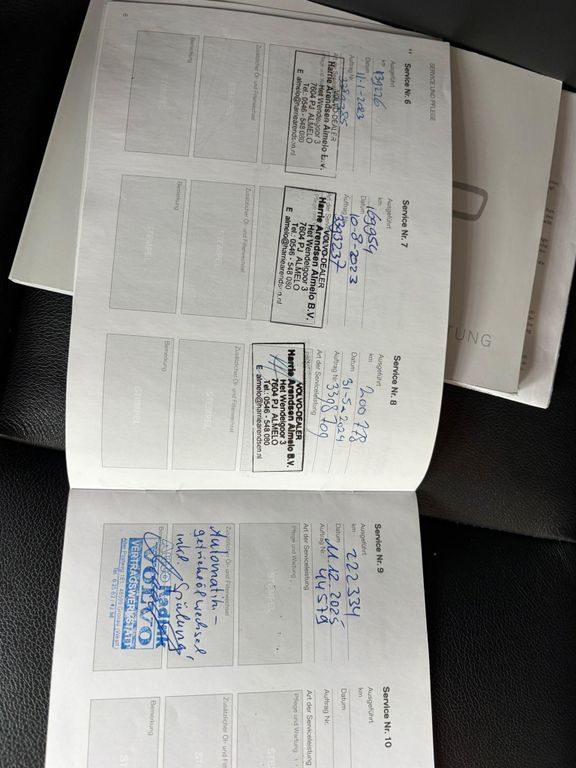 SERVICE UND PFLEGE
Service Nr. 6
Ausgeführt
km 139276
Datum 11-1-2023
Auftrag Nr.
VOLVO-DEALER
Harrie Arendsen Almelo b.v.
Het Wendelgoor 3
7604 PJ ALMELO
Tel.: 0546 - 548 080
E almelo@harriearendsen.nl
Zusätzlicher Öl- und Filterwechsel
Bemerkung
Service Nr. 7
Ausgeführt
km 169954
Datum 10-8-2023
Auftrag Nr. 3393237
Art der
VOLVO-DEALER
Harrie Arendsen Almelo B.V.
Het Wendelgoor 3
7604 PJ ALMELO
Tel.: 0546 - 548 080
E almelo@harriearendsen.nl
Zusätzlicher Öl- und Filterwechsel
Bemerkung
Service Nr. 8
Ausgeführt
km 200 778
Datum 31-5-2024
Auftrag Nr. 3398709
Art der Serviceleistung
VOLVO-DEALER
Harrie Arendsen Almelo B.V.
Het Wendelgoor 3
7604 PJ ALMELO
Tel.: 0546 - 548 080
E almelo@harriearendsen.nl
Zusätzlicher Öl- und Filterwechsel
Bemerkung
6
Service Nr. 9
Ausgeführt
km 222334
Datum 12.2025
Auftrag Nr. 44579
Art der Serviceleistung
Pflege und Wartung
Zusätzlicher Öl- und Filterwechsel
Automatik-
getriebeölwechsel
inkl Spülung!
VOLVO
VERTRAGSWERKSTATT
Service Nr. 10
Ausgeführt
km
Datum
Auftrag Nr.
Art der Serviceleistung
Pflege und Wartung
Zusätzlicher Öl- und F
Bemerkung
TUNG